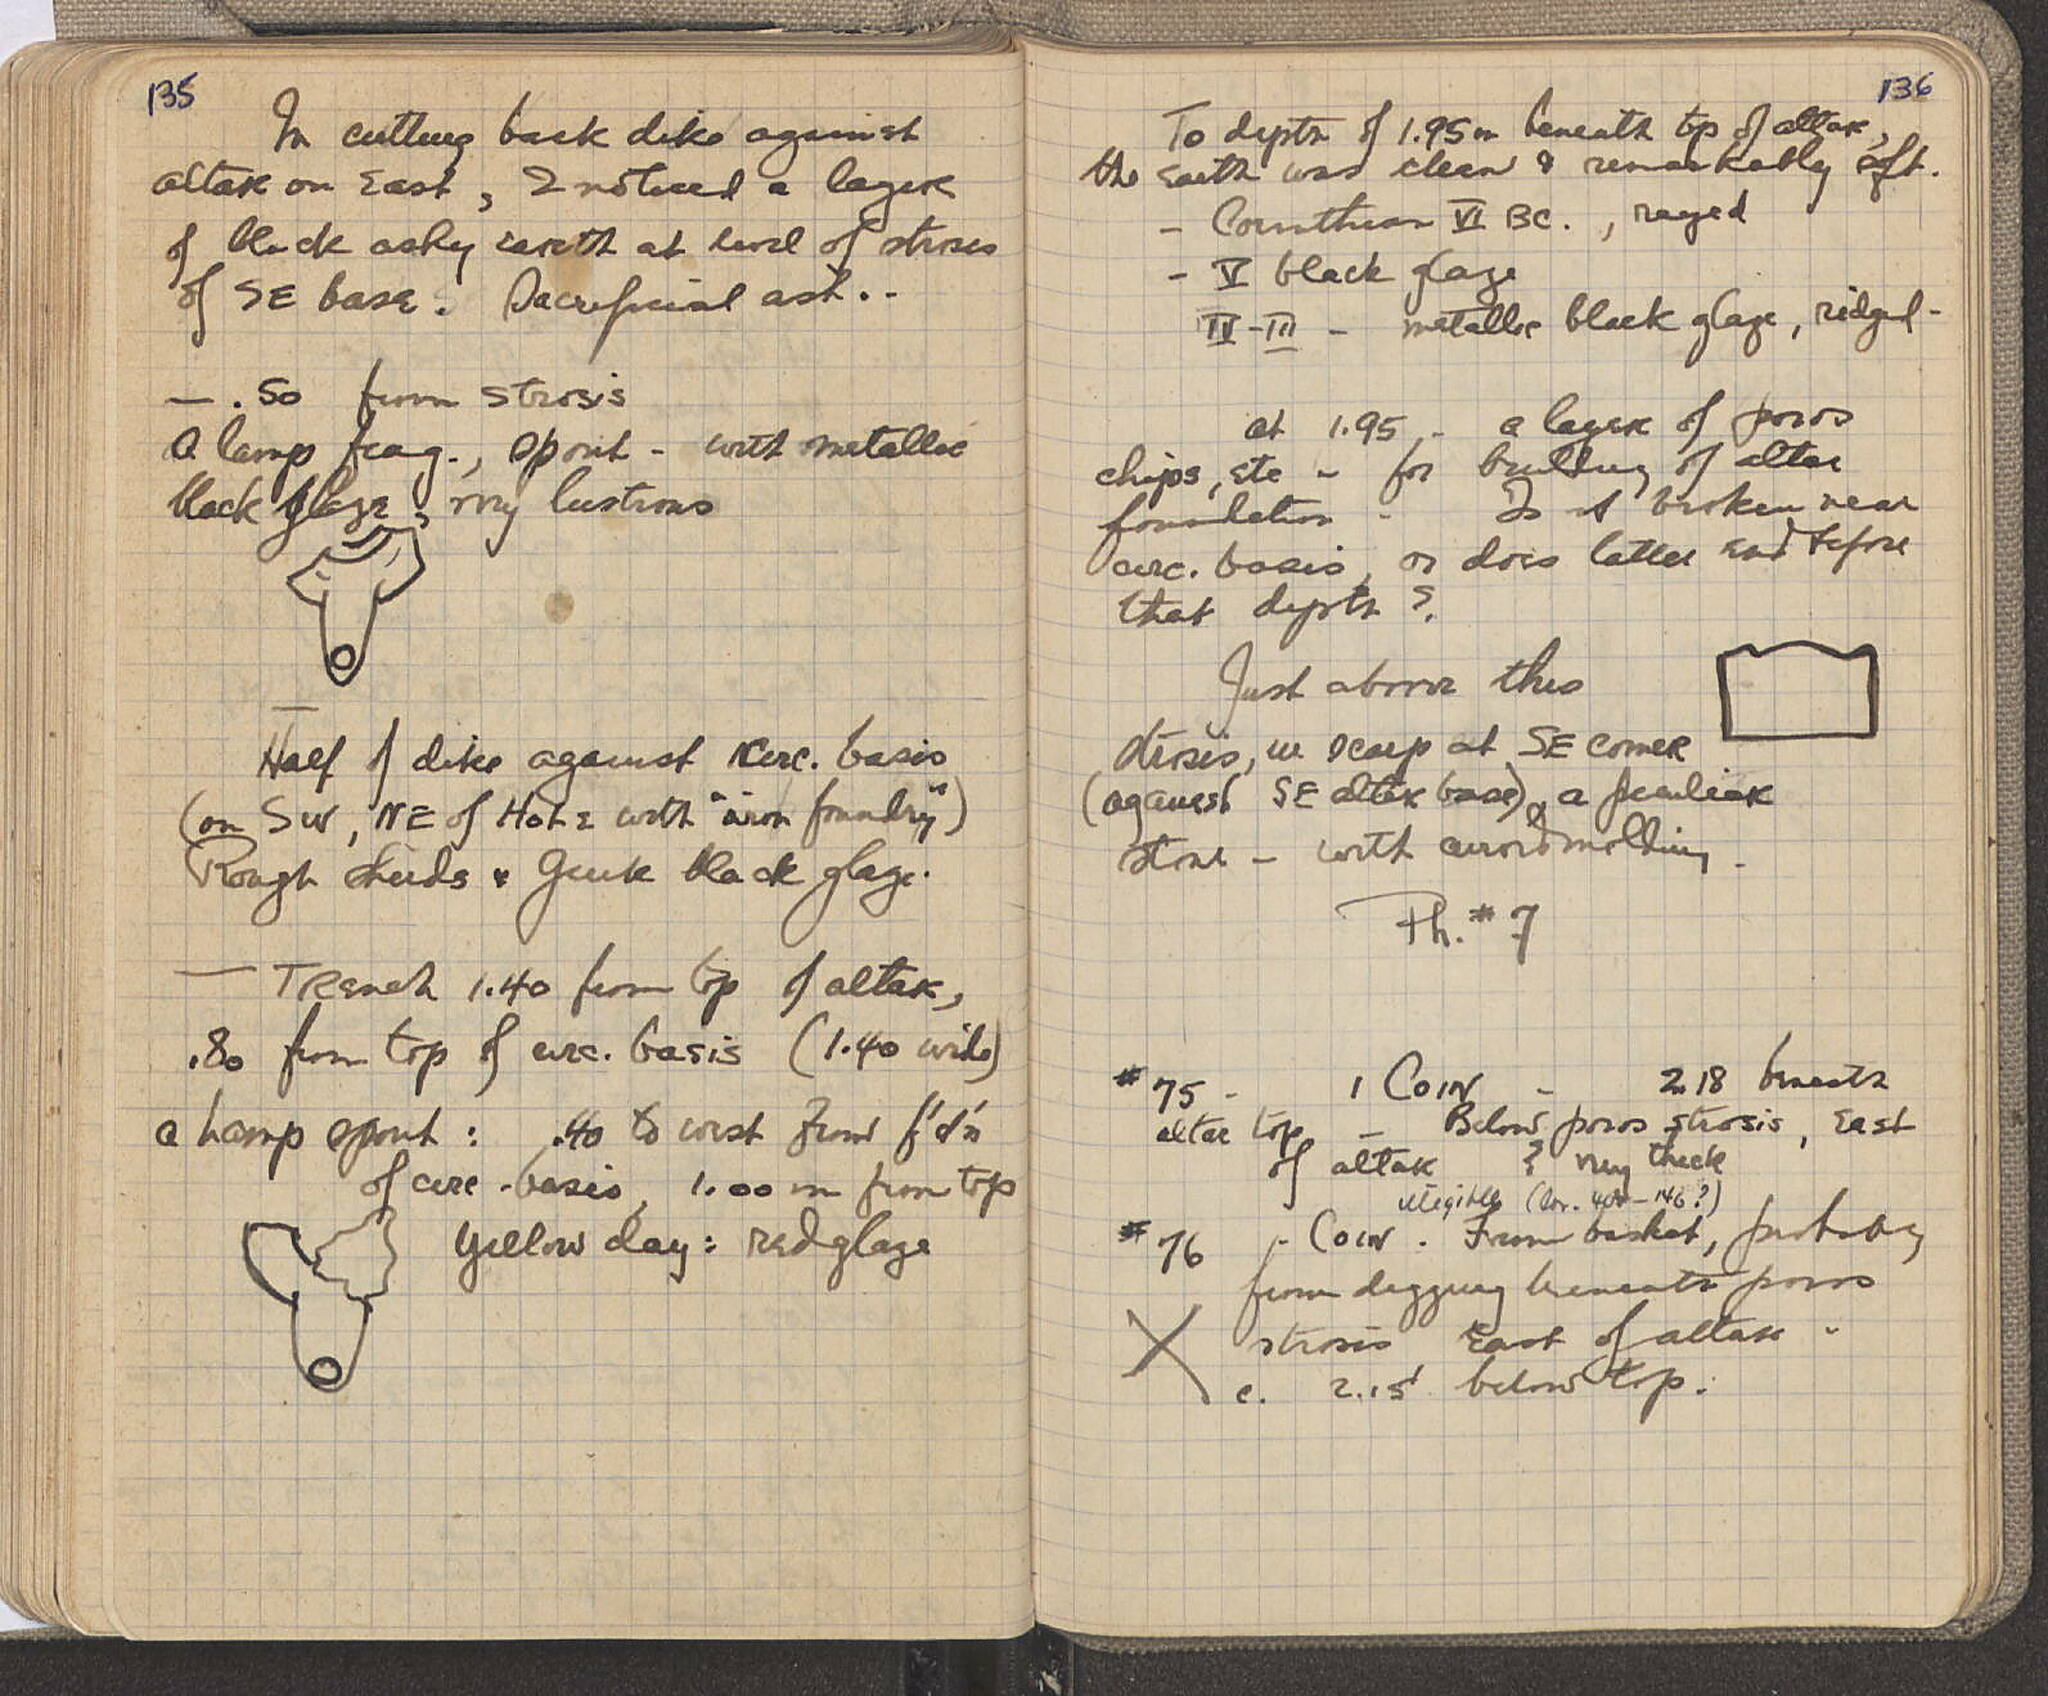 135
In cutting back dike against
altar on East, I noticed a layer
of black ashy earth at level of strosis
of SE base. Sacrificial ash..
— .50 from strosis
A lamp frag., spout - with metallic
black glaze, very lustrous
Half of dike against circ. basis
(on SW, NE of Hole with "iron foundry")
Rough sherds & Greek black glaze.
— Trench 1.40 from top of altar,
.80 from top of circ. basis (1.40 wide)
a Lamp spout: .40 to west from f'd'n
of circ. basis, 1.00 m from top
Yellow clay: red glaze
136
To depth of 1.95m beneath top of altar,
the earth was clean & remarkably soft.
- Corinthian VI BC., rayed
- V black glaze
IV-III - metallic black glaze, ridged -
at 1.95 - a layer of poros
chips, etc - for building of altar
foundation - Is it broken near
circ. basis, or does latter end before
that depth?
Just above this
strosis, in scarp at SE corner
(against SE altar base), a peculiar
stone - with curved molding -
Ph. # 7
#75 - 1 Coin - 2.18 beneath
altar top - Below poros strosis, East
of altar & very thick
illegible (Cor. 400-146?)
#76 - Coin. From basket, probably
from digging beneath poros
X strosis East of altar -
c. 2.15 below top.